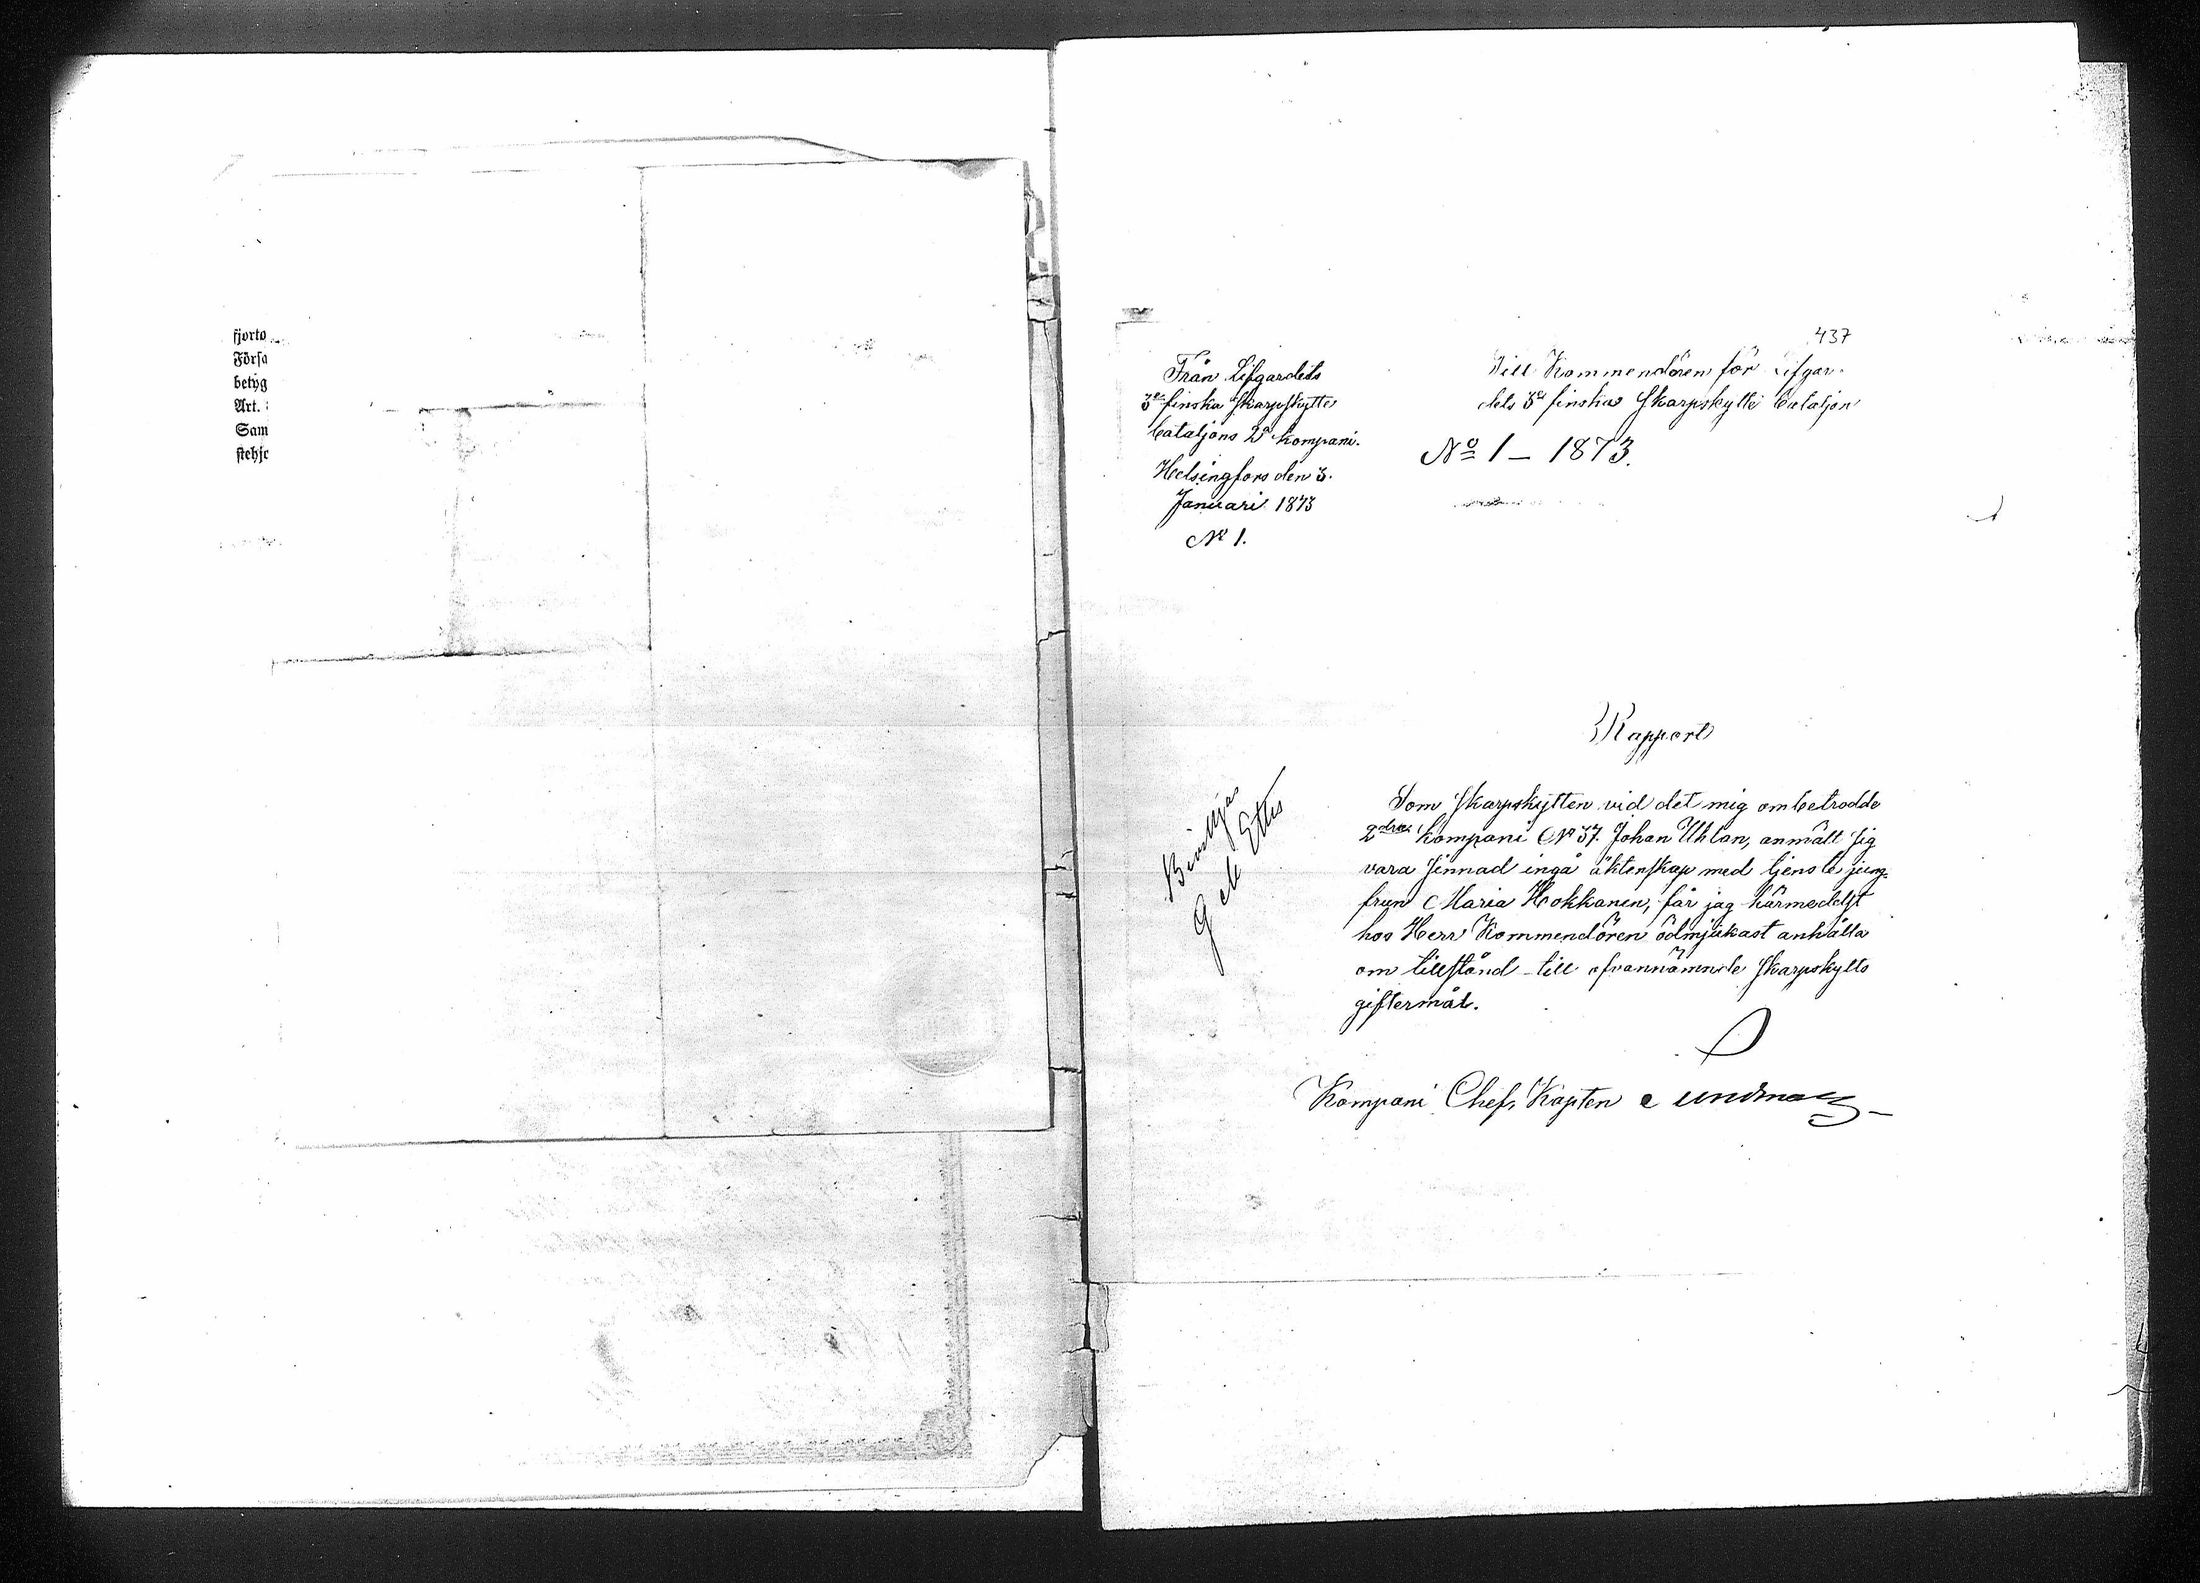 fjorto
Försa
betyg
Art.
Sam
stehje
437
Från Lifgardets
3e finska Skarpskytte
bataljons 2a kompani.
Helsingfors den 3.
Januari 1873
No 1.
Till Kommendören för Lifgar-
dets 3e finska Skarpskytte bataljon
No 1 – 1873.
Rapport
Som Skarpskytten vid det mig ombetrodde
2dra kompani No 37. Johan Uhlan, anmält sig
vara sinnad ingå äktenskap med tjenste jung-
frun Maria Hokkanen, får jag härmedelst
hos Herr Kommendören ödmjukast anhålla
om tillstånd till ofvannämnde Skarpskytts
giftermål.
Beviljas
Kompani Chef, Kapten